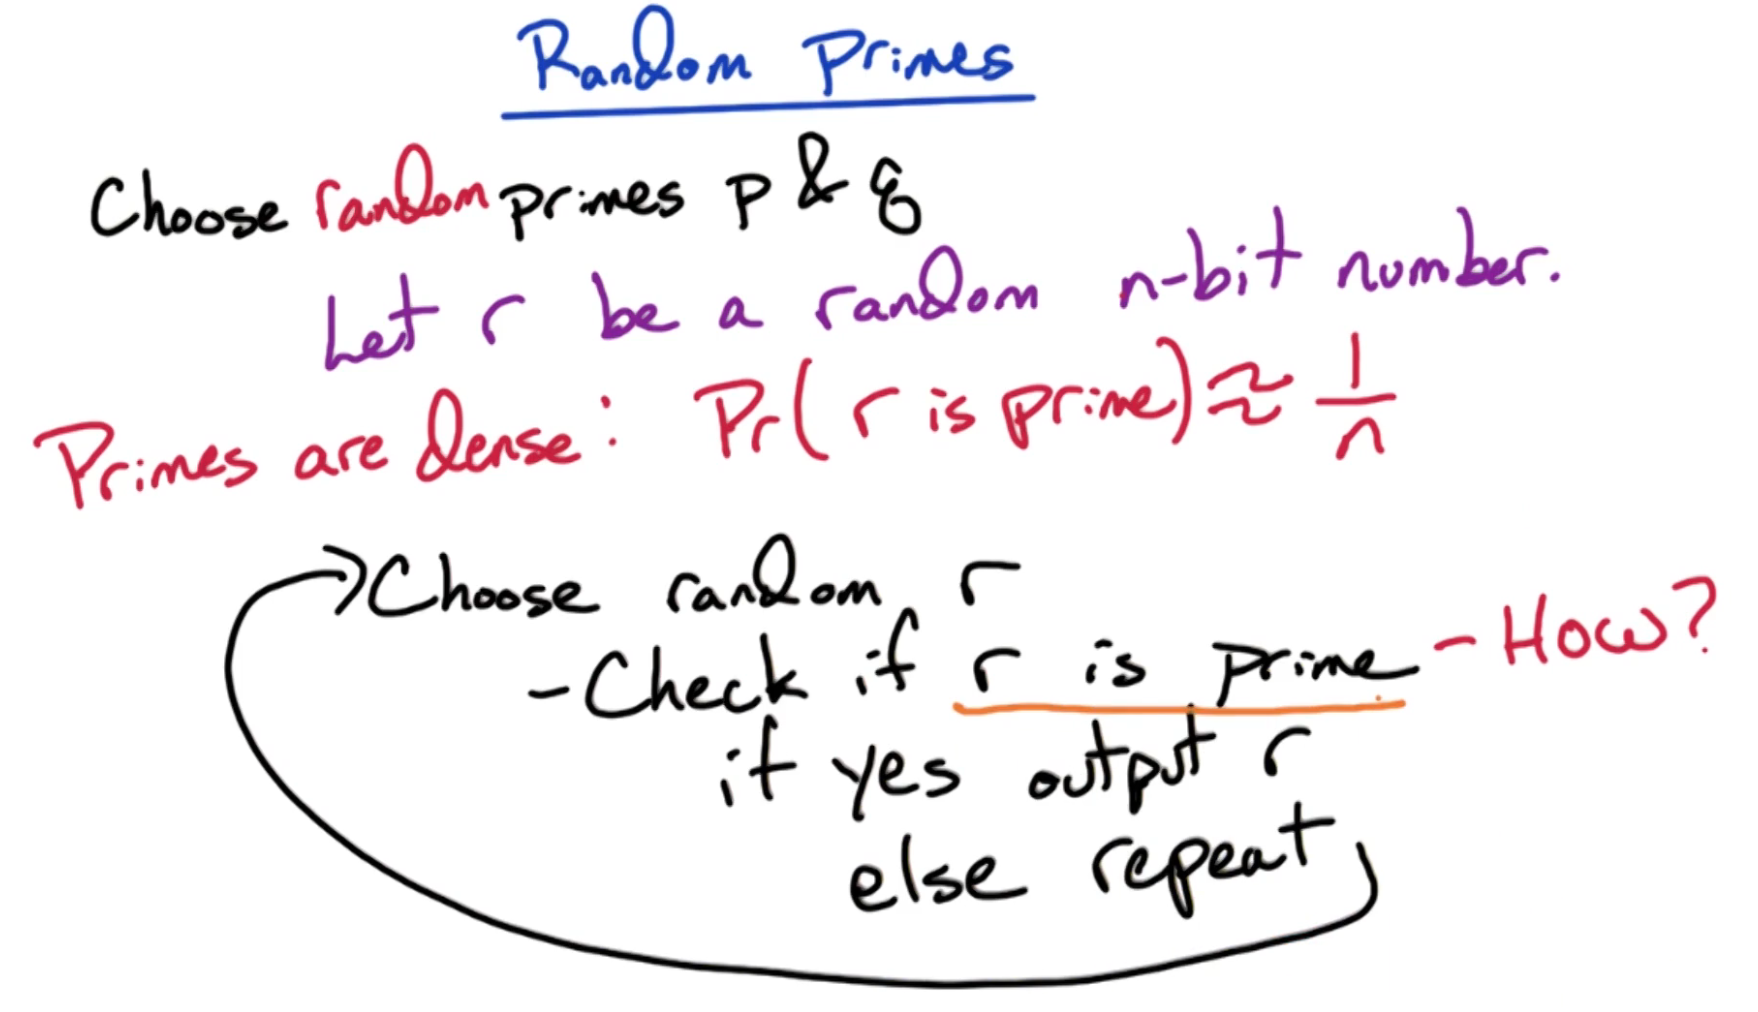 Random Primes
Choose random primes p & q
Let r be a random n-bit number.
Primes are dense: Pr(r is prime) ≈ 1/n
Choose random r
- Check if r is prime - How?
if yes output r
else repeat